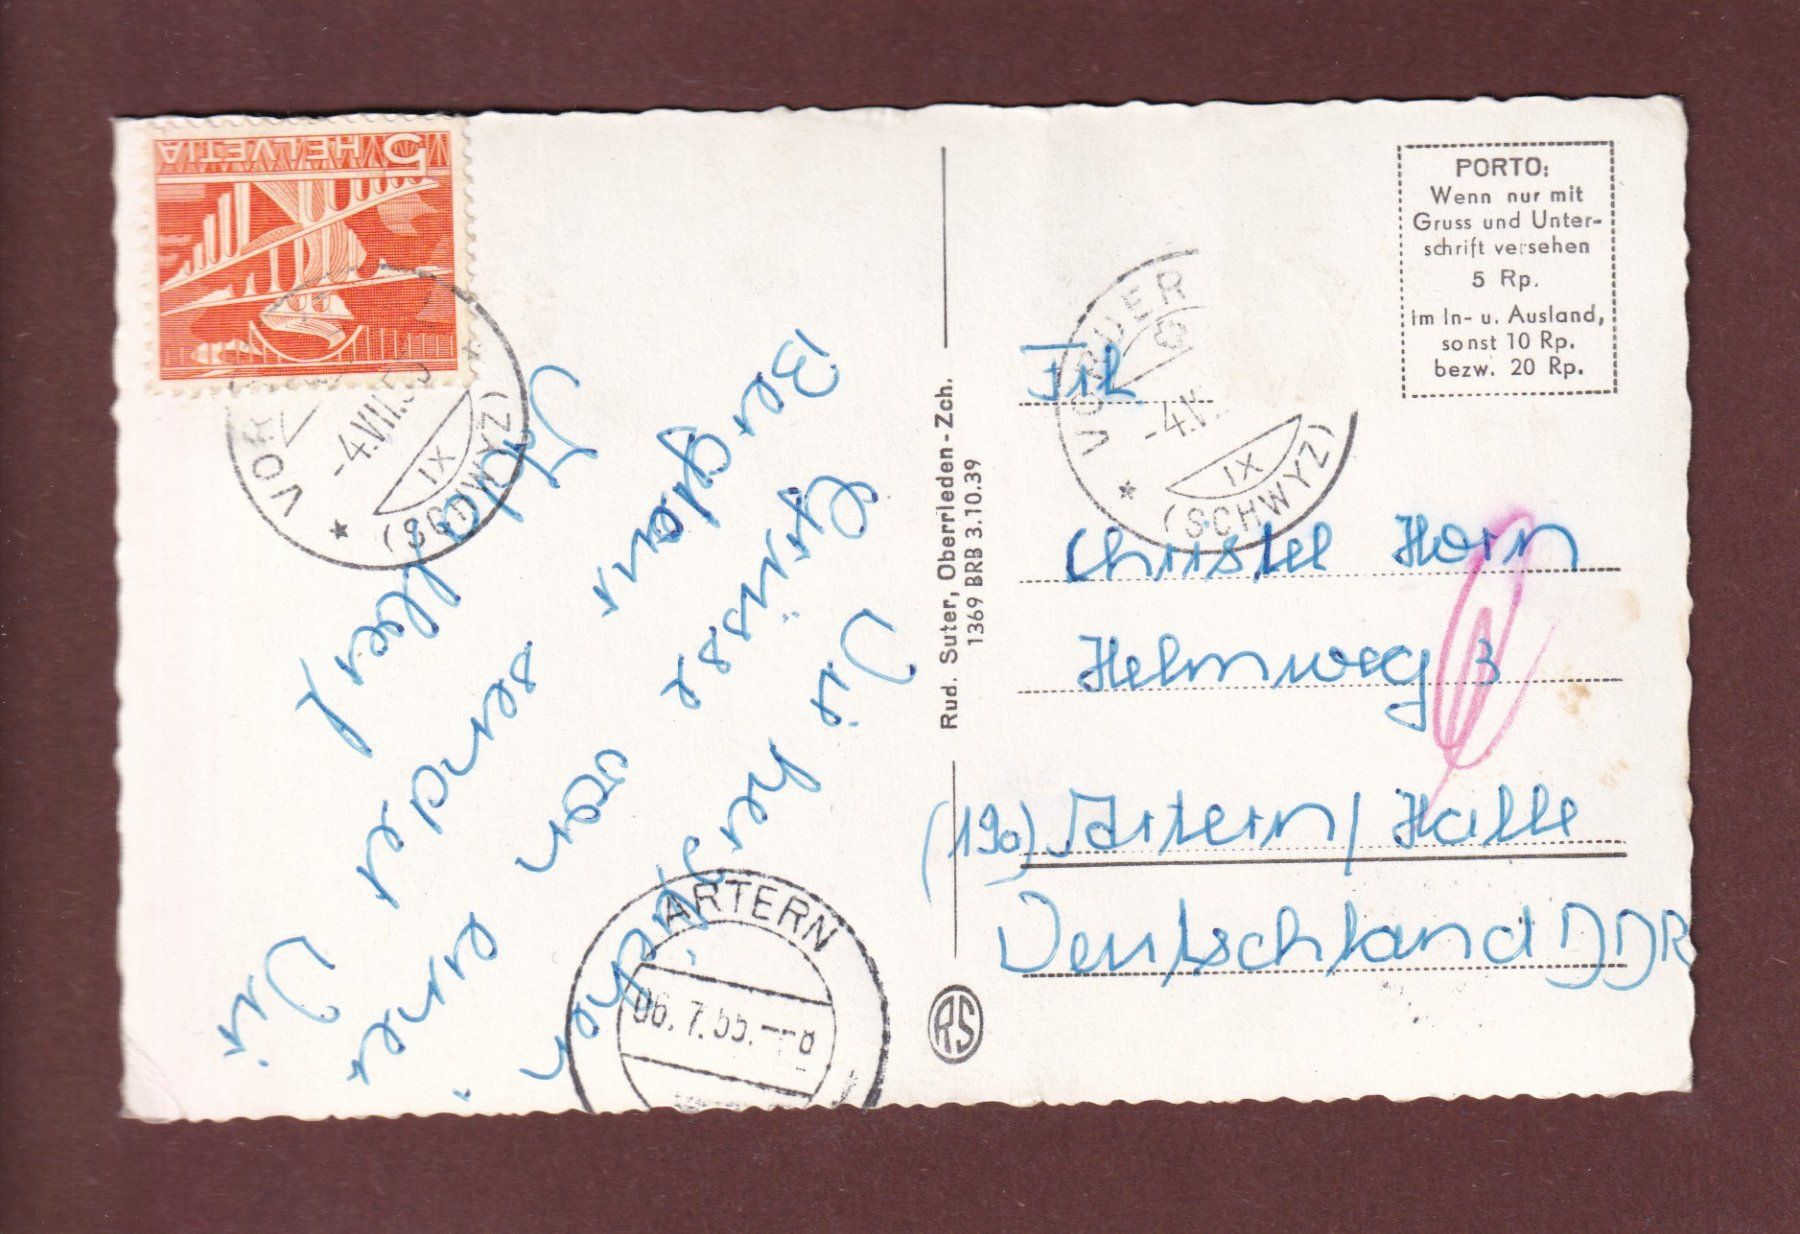 HELVETIA 5
VOR
-4.VII.5
IX
(SCHWYZ)
Die herzlichen
Grüsse von einer
Bergtour sendet Dir
Adalbert
ARTERN
06.7.55.--8
Rud. Suter, Oberrieden-Zch.
1369 BRB 3.10.39
RS
PORTO:
Wenn nur mit
Gruss und Unter-
schrift versehen
5 Rp.
im In- u. Ausland,
sonst 10 Rp.
bezw. 20 Rp.
VORDER
-4.V
IX
(SCHWYZ)
Frl.
Christel Horn
Helmweg 3
(19a) Artern / Halle
Deutschland DDR